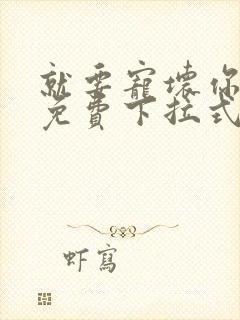 就要寵壞你
免費下拉式
虾寫